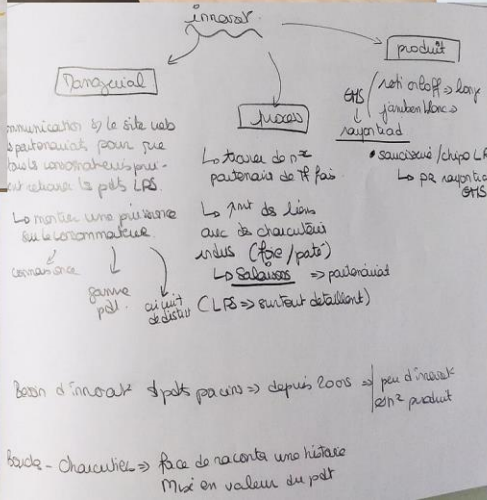 innovat°
Managerial
process
produit
mmunication s/ le site web
partenariats pour que
tous les consommateurs puis-
ent retrouver les pdts LPS.
↳ montrer une puissance
sur le consommateur
connaissance
gamme
pdt.
circuit
de distri
↳ trouver de nx
partenaire de
↳ des liens
avec de charcutiers
indus (foie/paté)
↳ Salaisons => partenariat
(LPS => surtout detaillent)
GMS
roti orloff => longe
jambon blanc =>
↳ rayon trad
• saucisserie / chipo LR
↳ pr rayon trad
GMS
Besoin d'innovat° pdts porcins => depuis 2005 => peu d'innovat°
en produit
Boucher-Charcutier => face de raconter une histoire
Mise en valeur du pdt